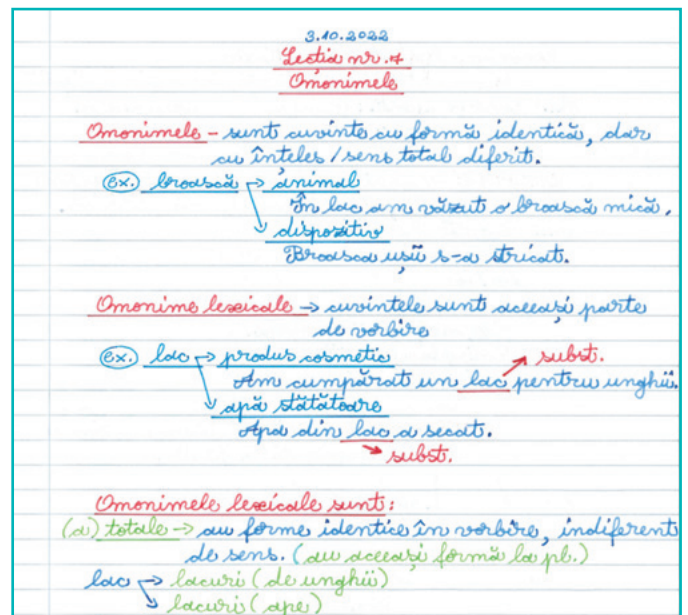 3.10.2022
Lecția nr. 4
Omonimele
Omonimele - sunt cuvinte cu formă identică, dar
cu înteles / sens total diferit.
ex. broască → animal
În lac am văzut o broască mică.
→ dispozitiv
Broasca ușii s-a stricat.
Omonime lexicale → cuvintele sunt aceeași parte
de vorbire
ex. lac → produs cosmetic
subst.
Am cumpărat un lac pentru unghii.
→ apă stătătoare
Apa din lac a secat.
→ subst.
Omonimele lexicale sunt:
(a) totale → au forme identice în vorbire, indiferent
de sens. (au aceeași formă la pl.)
lac → lacuri (de unghii)
→ lacuri (ape)